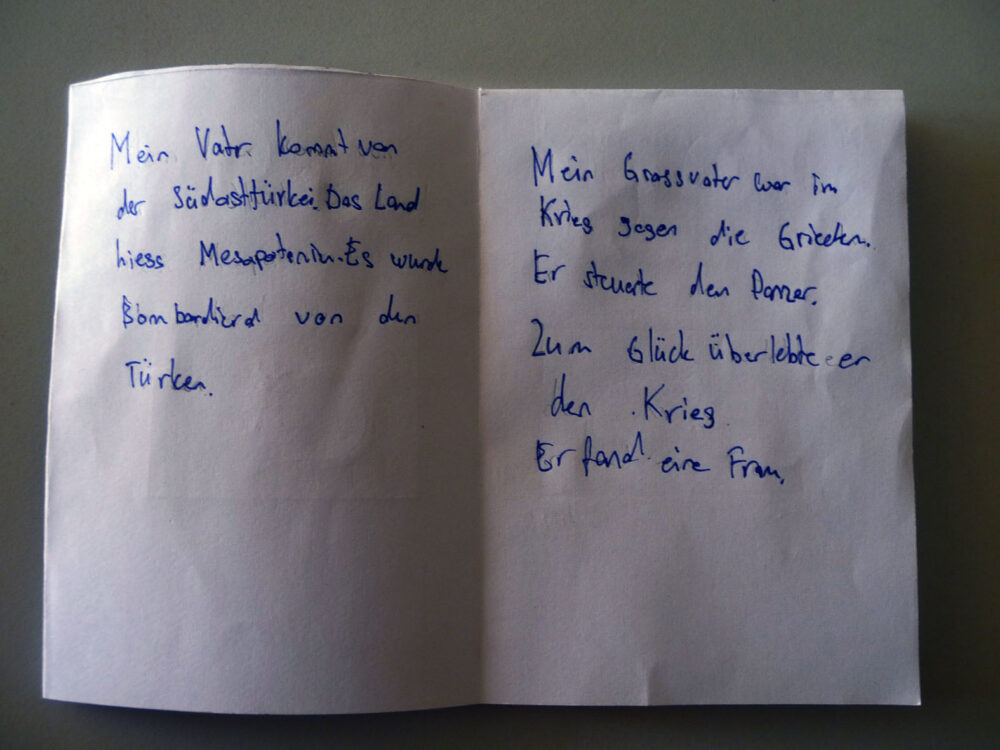 Mein Vatr kommt von
der Südostfürkei. Das Land
hiess Mesapotenin. Es wurde
Bombardierd von den
Türken.
Mein Grossvater war im
Krieg gegen die Griceten.
Er steuerte den Panzer.
Zum Glück überlebte er
den Krieg
Er fand eine Frau.